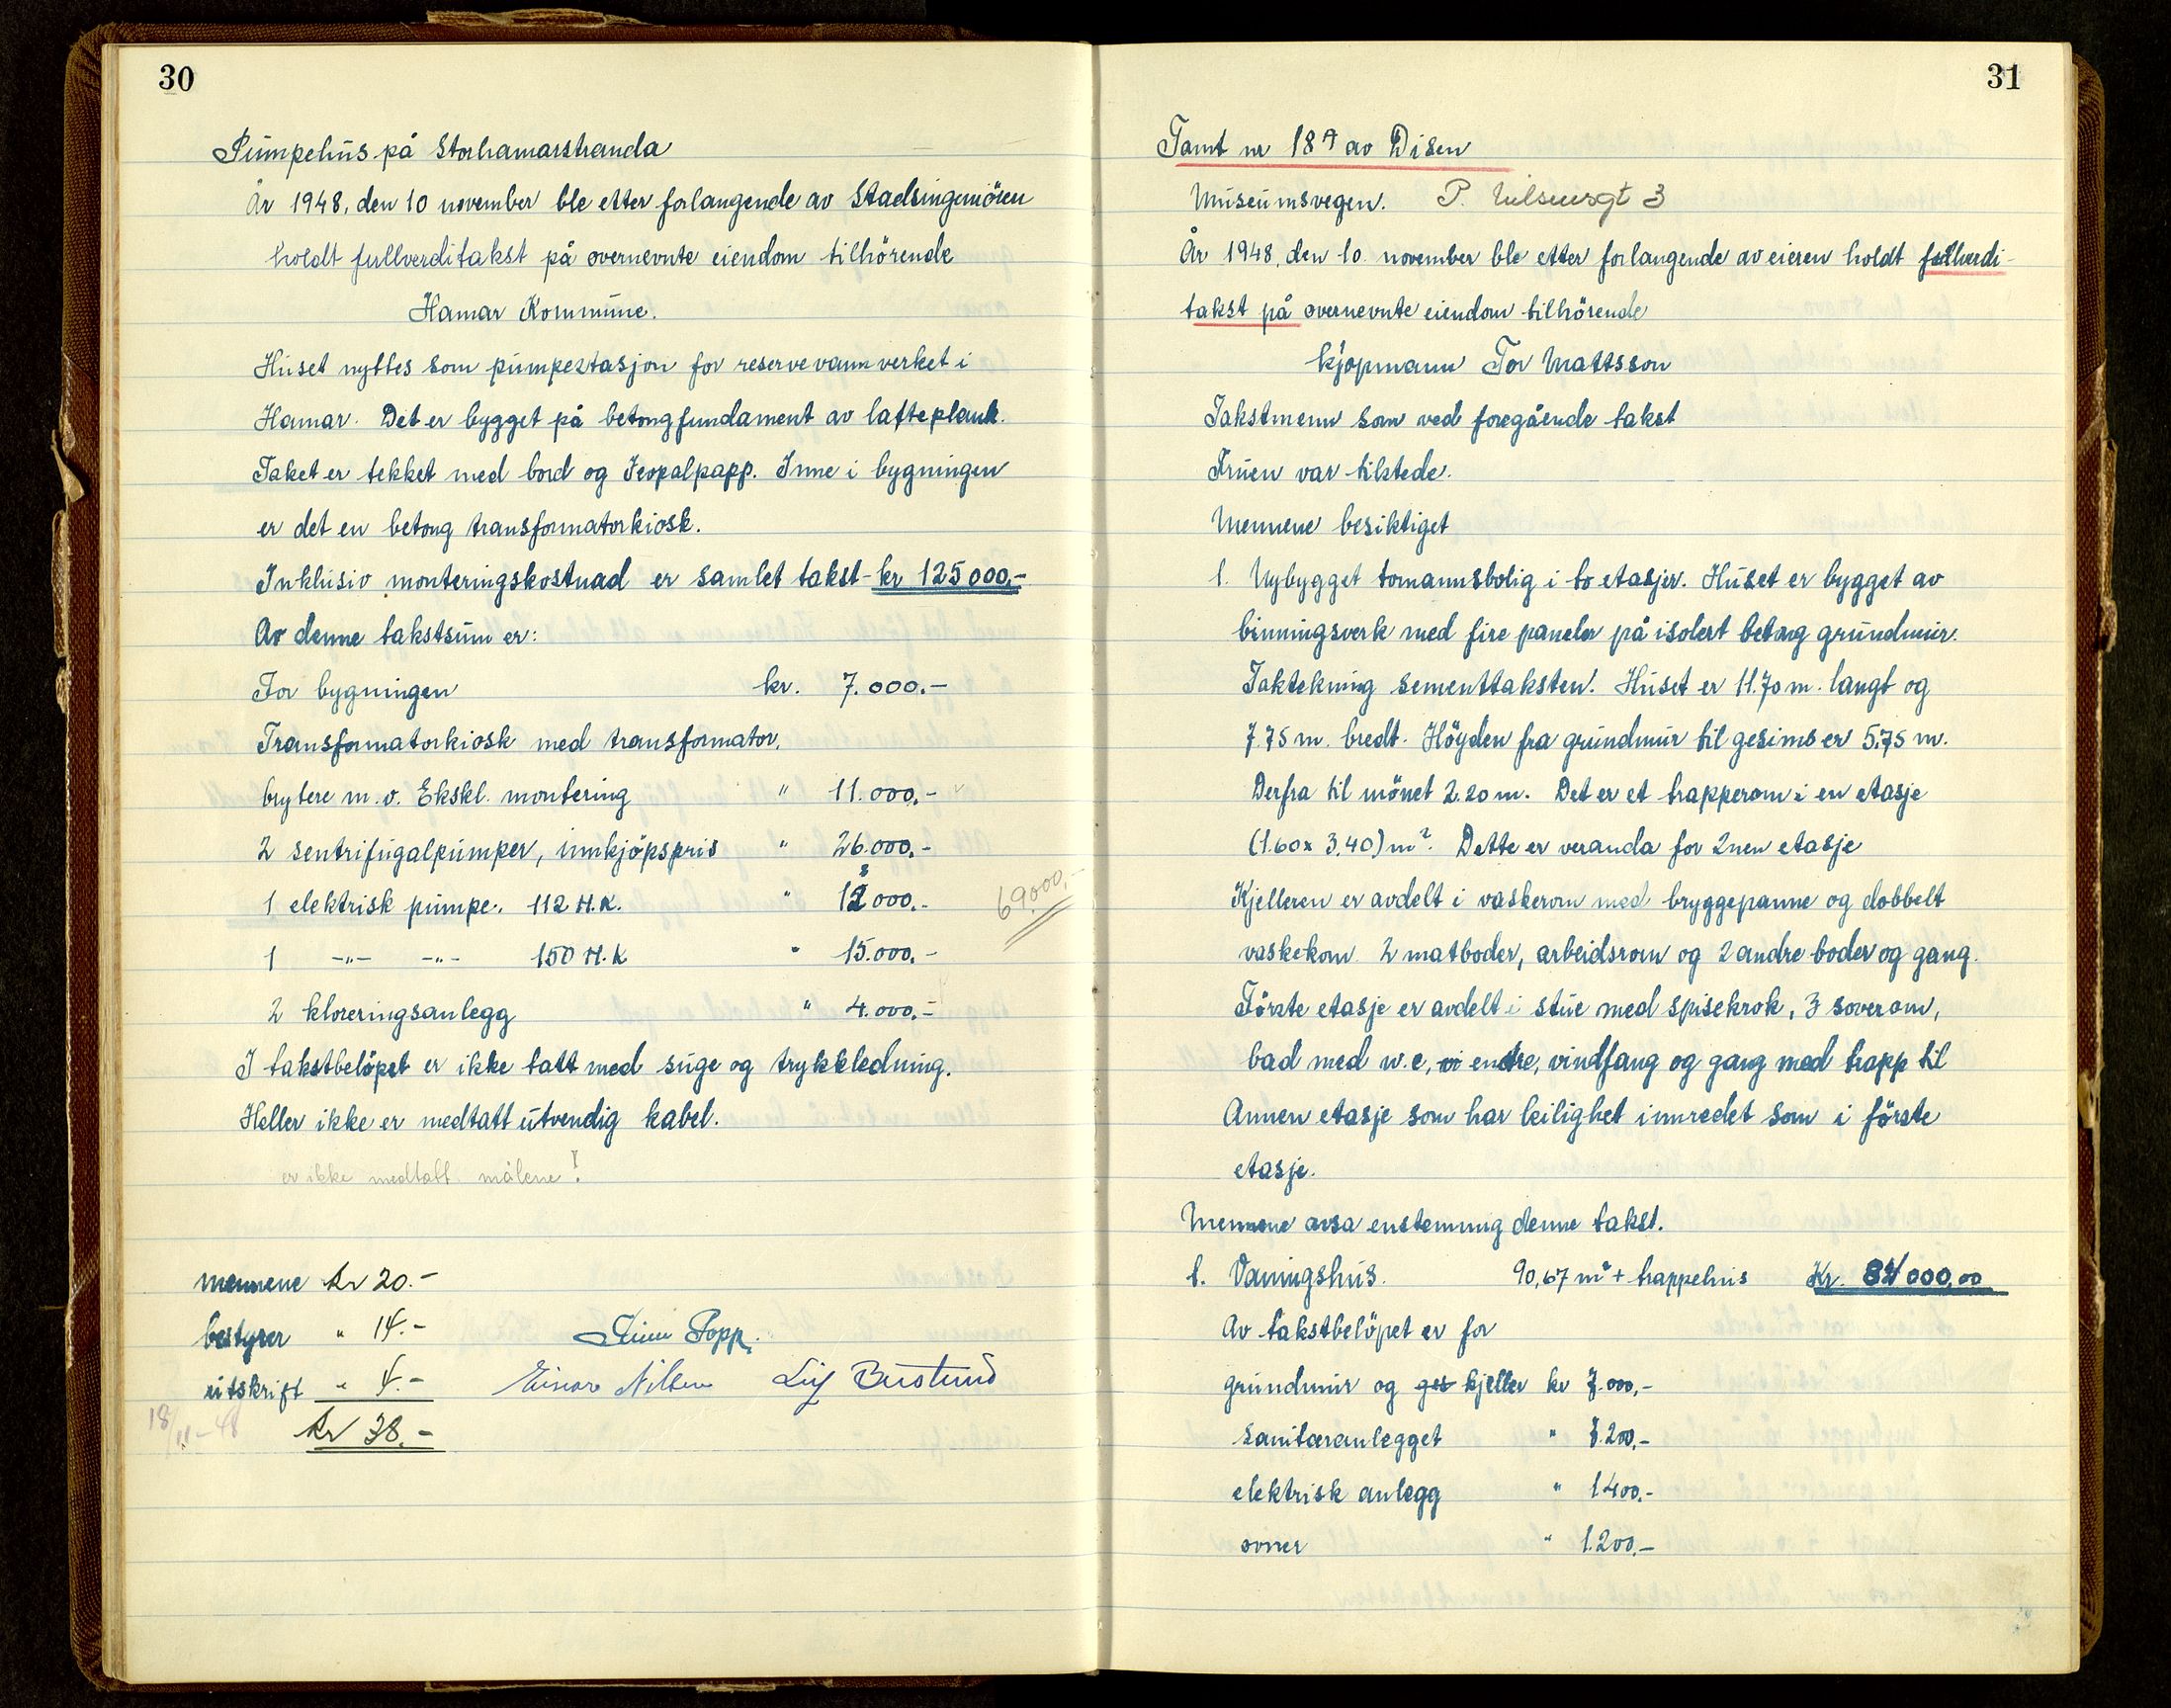 30
Pumpehus på Storhamarstranda
År 1948, den 10 november ble etter forlangende av Stadsingeniören
holdt fullverditakst på overnevnte eiendom tilhörende
Hamar Kommune.
Huset nyttes som pumpestasjon for reservevannverket i
Hamar. Det er bygget på betongfundament av lafteplank.
Taket er tekket med bord og Icopalpapp. Inne i bygningen
er det en betong transformatorkiosk.
Inklusiv monteringskostnad er samlet takst kr 125000,-
Av denne takstsum er:
For bygningen kr. 7.000.-
Transformatorkiosk med transformator,
brytere m.v. Ekskl. montering " 11.000,-
2 sentrifugalpumper, innkjöpspris " 26.000,-
1 elektrisk pumpe. 112 H.K. " 12000.- 69.000,-
1 -"- -"- 150 H.K " 15.000,-
2 kloreringsanlegg " 4.000,-
I takstbelöpet er ikke tatt med suge og trykkledning.
Heller ikke er medtatt utvendig kabel.
er ikke medtatt målene!
mennene kr 20.-
bestyrer " 14.-
utskrift " 4.- Einar Nilsen Leif Bustund
18/11-48 kr 38.-
31
Tomt nr 18A av Disen
Museumsvegen. P.
År 1948, den 10. november ble etter forlangende av eieren holdt fullverdi-
takst på overnevnte eiendom tilhörende
kjöpmann Tor Mattsson
Takstmenn som ved foregående takst
Fruen var tilstede.
Mennene besiktiget
1. Nybygget tomannsbolig i to etasjer. Huset er bygget av
binningsverk med fire paneler på isolert betong grundmur.
Taktekning sementtaksten. Huset er 11.70 m. langt og
7.75 m. bredt. Höyden fra grundmur til gesims er 5.75 m.
Derfra til mönet 2.20 m. Det er et trapperom i en etasje
(1.60 x 3.40) m². Dette er veranda for 2nen etasje
Kjelleren er avdelt i vaskerom med bryggepanne og dobbelt
vaskekom. 2 matboder, arbeidsrom og 2 andre boder og gang.
Förste etasje er avdelt i stue med spisekrok, 3 soverom,
bad med w.c, vi entre, vindfang og gang med trapp til
Annen etasje som har leilighet innredet som i förste
etasje.
Mennene avsa enstemmig denne takst.
1. Våningshus. 90,67 m² + trappehus Kr. 000,00
Av takstbelöpet er for
grundmur og ges kjeller kr 7.000,-
sanitæranlegget " 200,-
elektrisk anlegg " 1400.-
ovner " 1.200,-